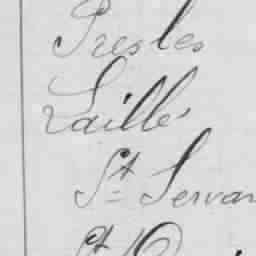 Presles
Laillé
St Servan
St